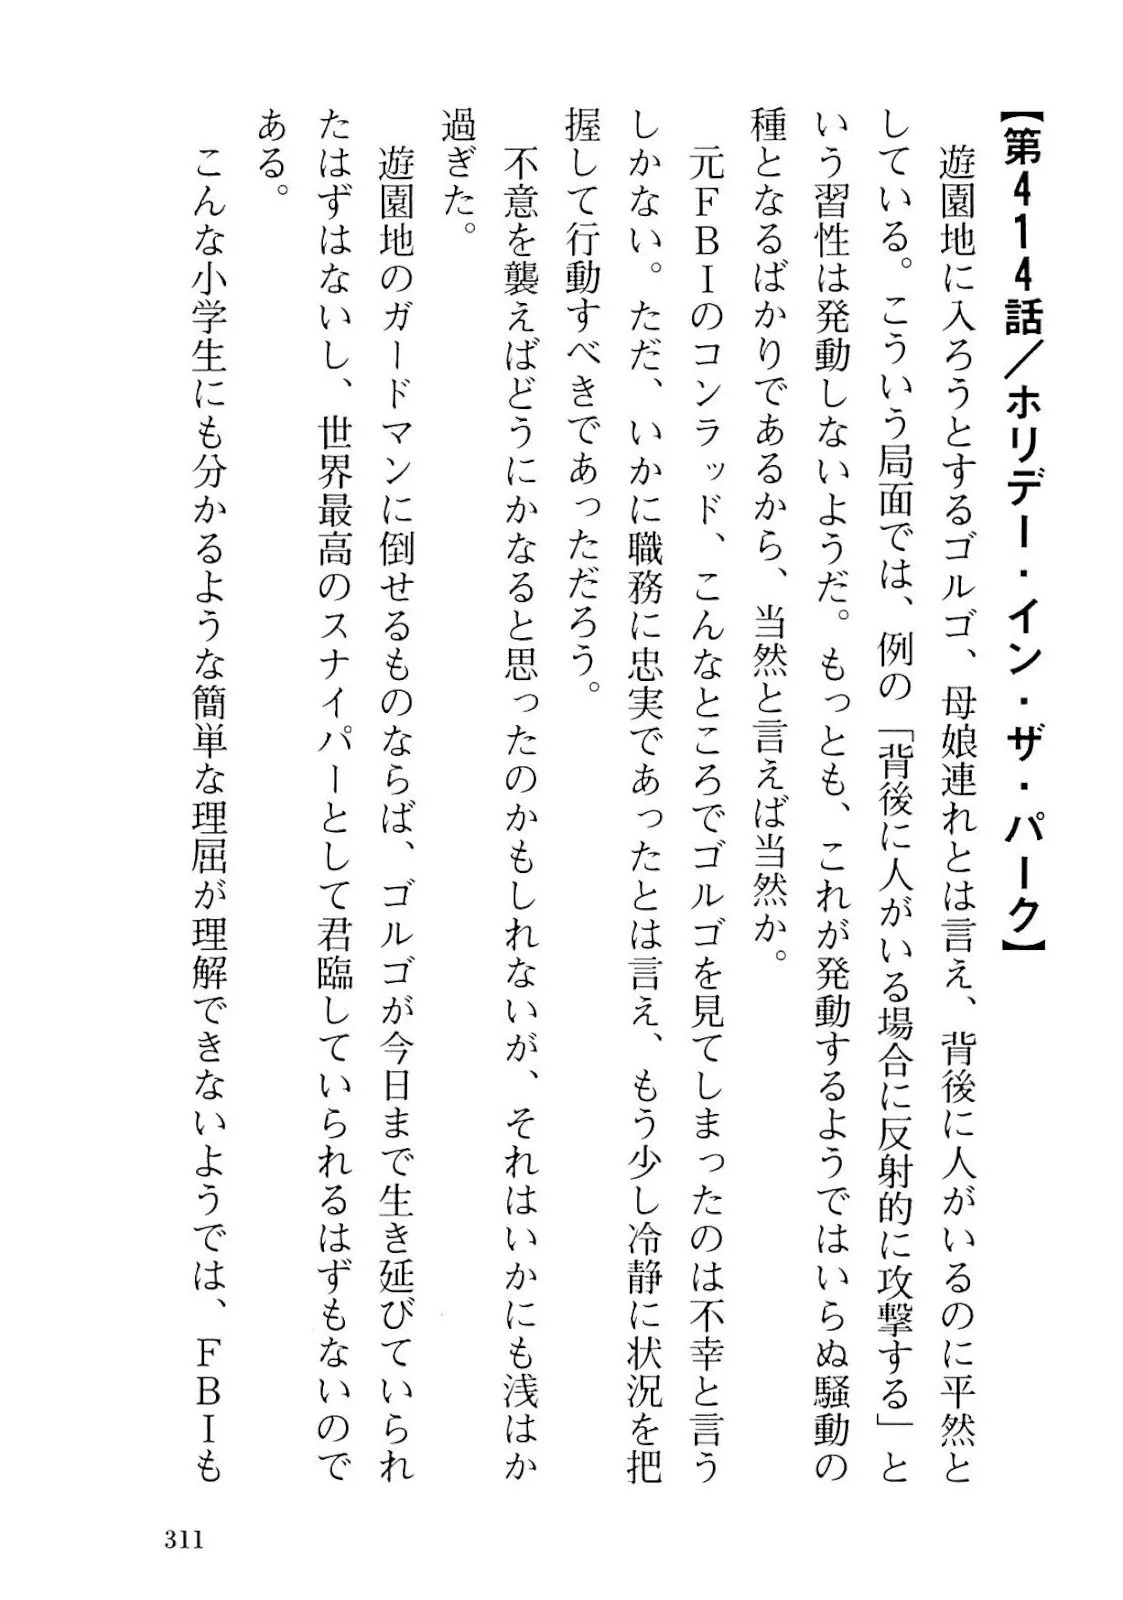 【第414話／ホリデー・イン・ザ・パーク】
遊園地に入ろうとするゴルゴ、母娘連れとは言え、背後に人がいるのに平然と
している。こういう局面では、例の「背後に人がいる場合に反射的に攻撃する」と
いう習性は発動しないようだ。もっとも、これが発動するようではいらぬ騒動の
種となるばかりであるから、当然と言えば当然か。
元ＦＢＩのコンラッド、こんなところでゴルゴを見てしまったのは不幸と言う
しかない。ただ、いかに職務に忠実であったとは言え、もう少し冷静に状況を把
握して行動すべきであっただろう。
不意を襲えばどうにかなると思ったのかもしれないが、それはいかにも浅はか
過ぎた。
遊園地のガードマンに倒せるものならば、ゴルゴが今日まで生き延びていられ
たはずはないし、世界最高のスナイパーとして君臨していられるはずもないので
ある。
こんな小学生にも分かるような簡単な理屈が理解できないようでは、ＦＢＩも
311